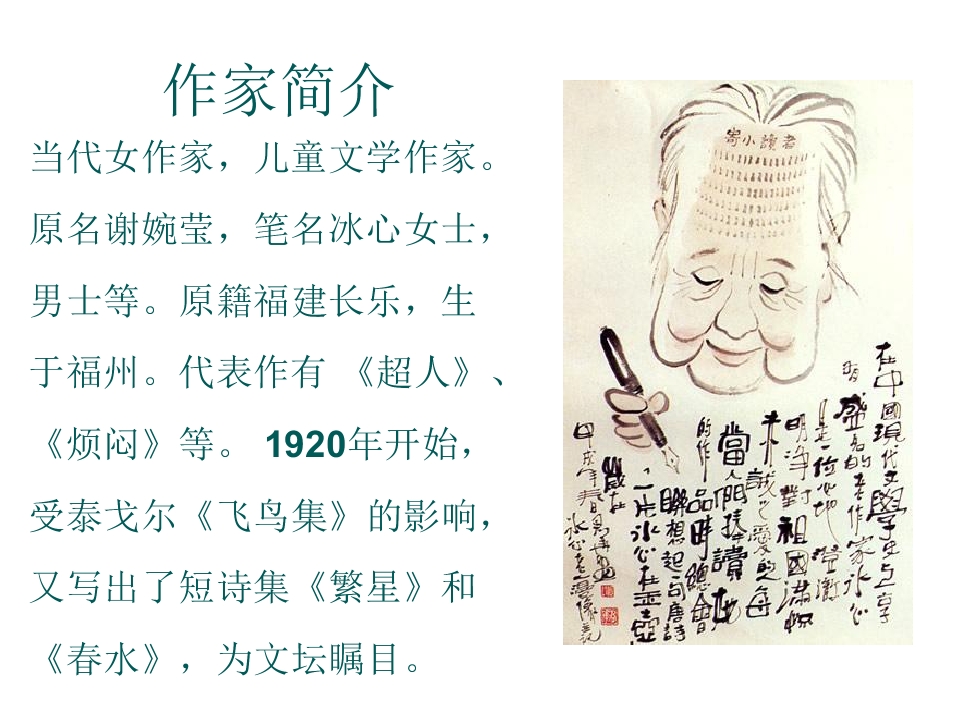 作家简介
当代女作家，儿童文学作家。
原名谢婉莹，笔名冰心女士，
男士等。原籍福建长乐，生
于福州。代表作有 《超人》、
《烦闷》等。 1920年开始，
受泰戈尔《飞鸟集》的影响，
又写出了短诗集《繁星》和
《春水》，为文坛瞩目。
寄小讀者
在中國現代文學史上享
有盛名的老作家冰心
是一位心地澄澈
明淨對祖國滿懷
未誠之愛的母
當人們捧讀她
的作品時總會
聯想起一句唐詩
一片冰心在玉壺